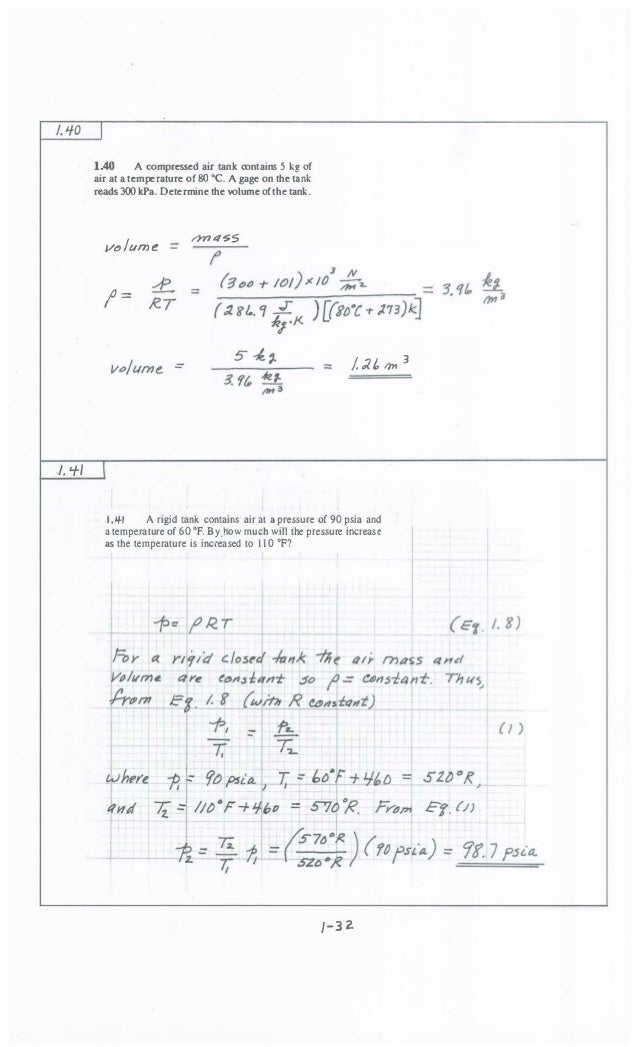 1.40
1.40 A compressed air tank contains 5 kg of
air at a temperature of 80 °C. A gage on the tank
reads 300 kPa. Determine the volume of the tank.
volume = mass / ρ
ρ = p / RT = (300 + 101) × 10³ N/m² / (286.9 J/kg·K)[(80°C + 273)K] = 3.96 kg/m³
volume = 5 kg / 3.96 kg/m³ = 1.26 m³
1.41
1.41 A rigid tank contains air at a pressure of 90 psia and
a temperature of 60 °F. By how much will the pressure increase
as the temperature is increased to 110 °F?
p = ρRT (Eq. 1.8)
For a rigid closed tank the air mass and
volume are constant so ρ = constant. Thus,
from Eq. 1.8 (with R constant)
p₁ / T₁ = p₂ / T₂ (1)
where p₁ = 90 psia, T₁ = 60°F + 460 = 520°R,
and T₂ = 110°F + 460 = 570°R. From Eq. (1)
p₂ = T₂ / T₁ p₁ = (570°R / 520°R) (90 psia) = 98.7 psia
1-32